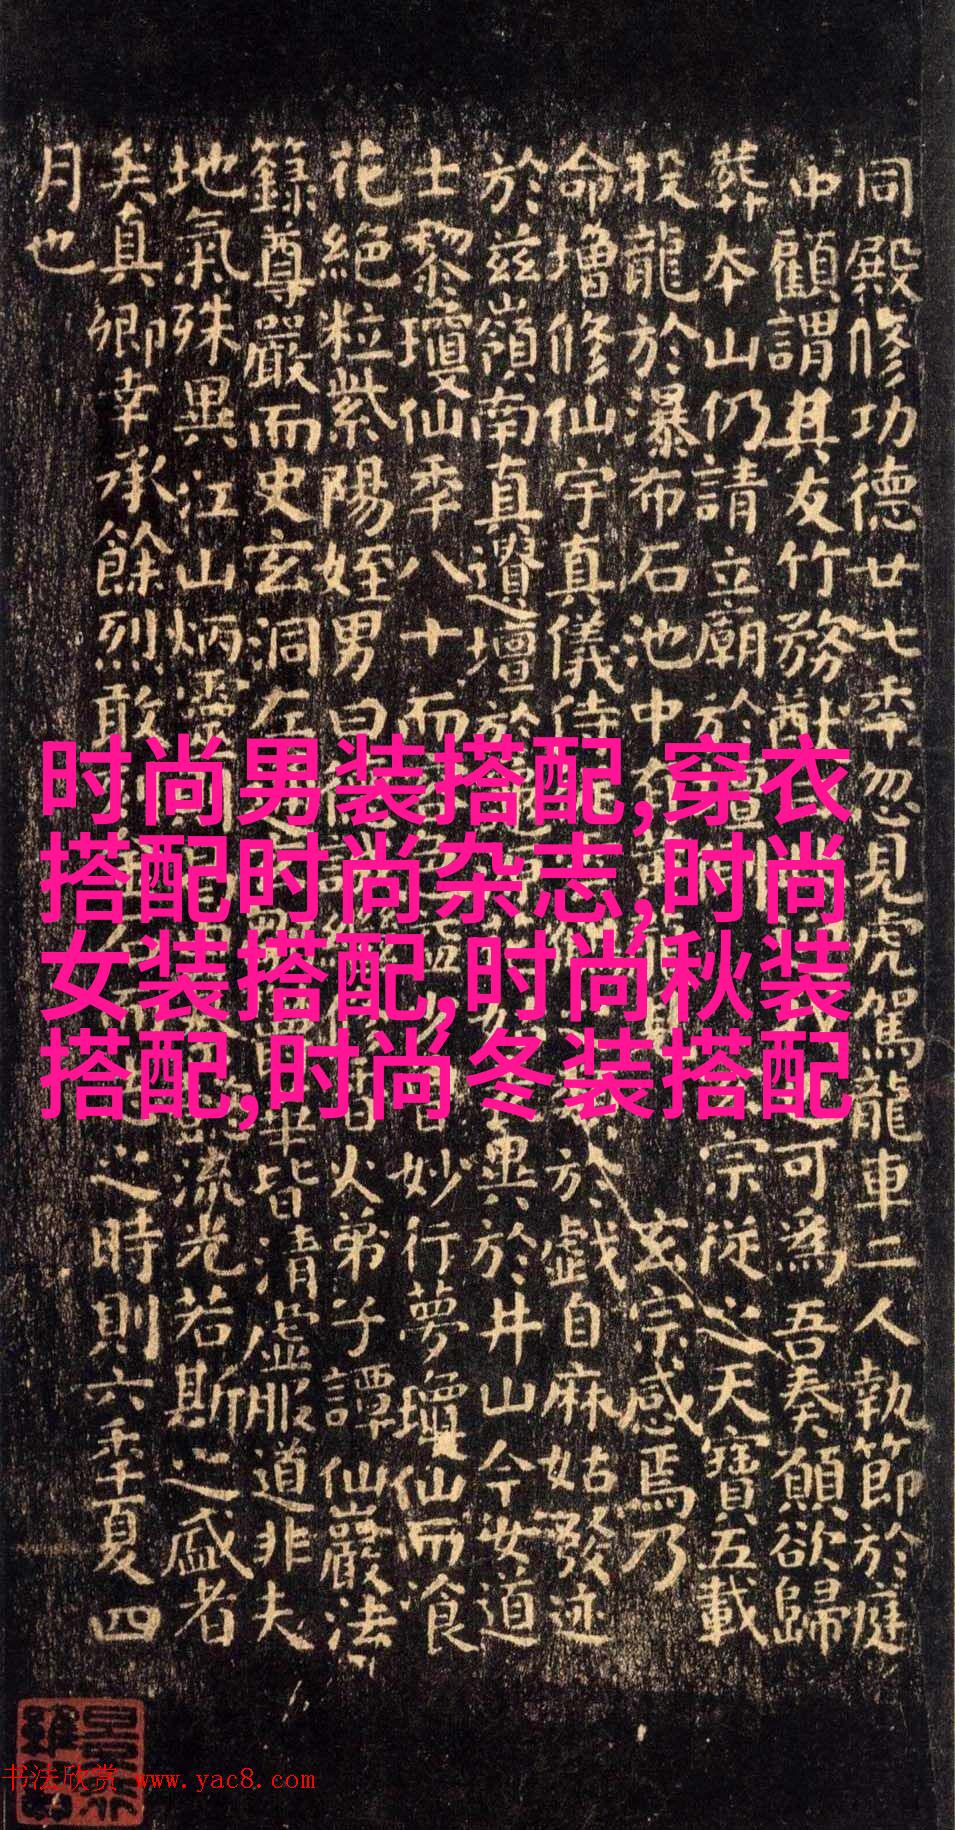 同殿修功德廿七年忽見虎駕龍車二人執節於庭
中顧謂其友竹務猷可為吾奏願欲歸
葬本山仍請立廟於宗從之天寶五載
投龍於瀑布石池中玄宗感焉乃
命增修仙宇真儀侍於戲自麻姑發迹
於茲嶺南真遺壇於異於井山今女道
士黎瓊仙年八十而妙行夢瓊仙而飡
花絕粒紫陽姪男曰火弟子譚仙巖法
籙尊嚴而史玄洞左華皆清虛服道非夫
地氣殊異江山炳靈流光若斯之盛者
矣真卿幸承餘烈敢之時則六年夏四
月也
时尚男装搭配,穿衣
搭配时尚杂志,时尚
女装搭配,时尚秋装
搭配,时尚冬装搭配
书法欣赏 www.yac8.com